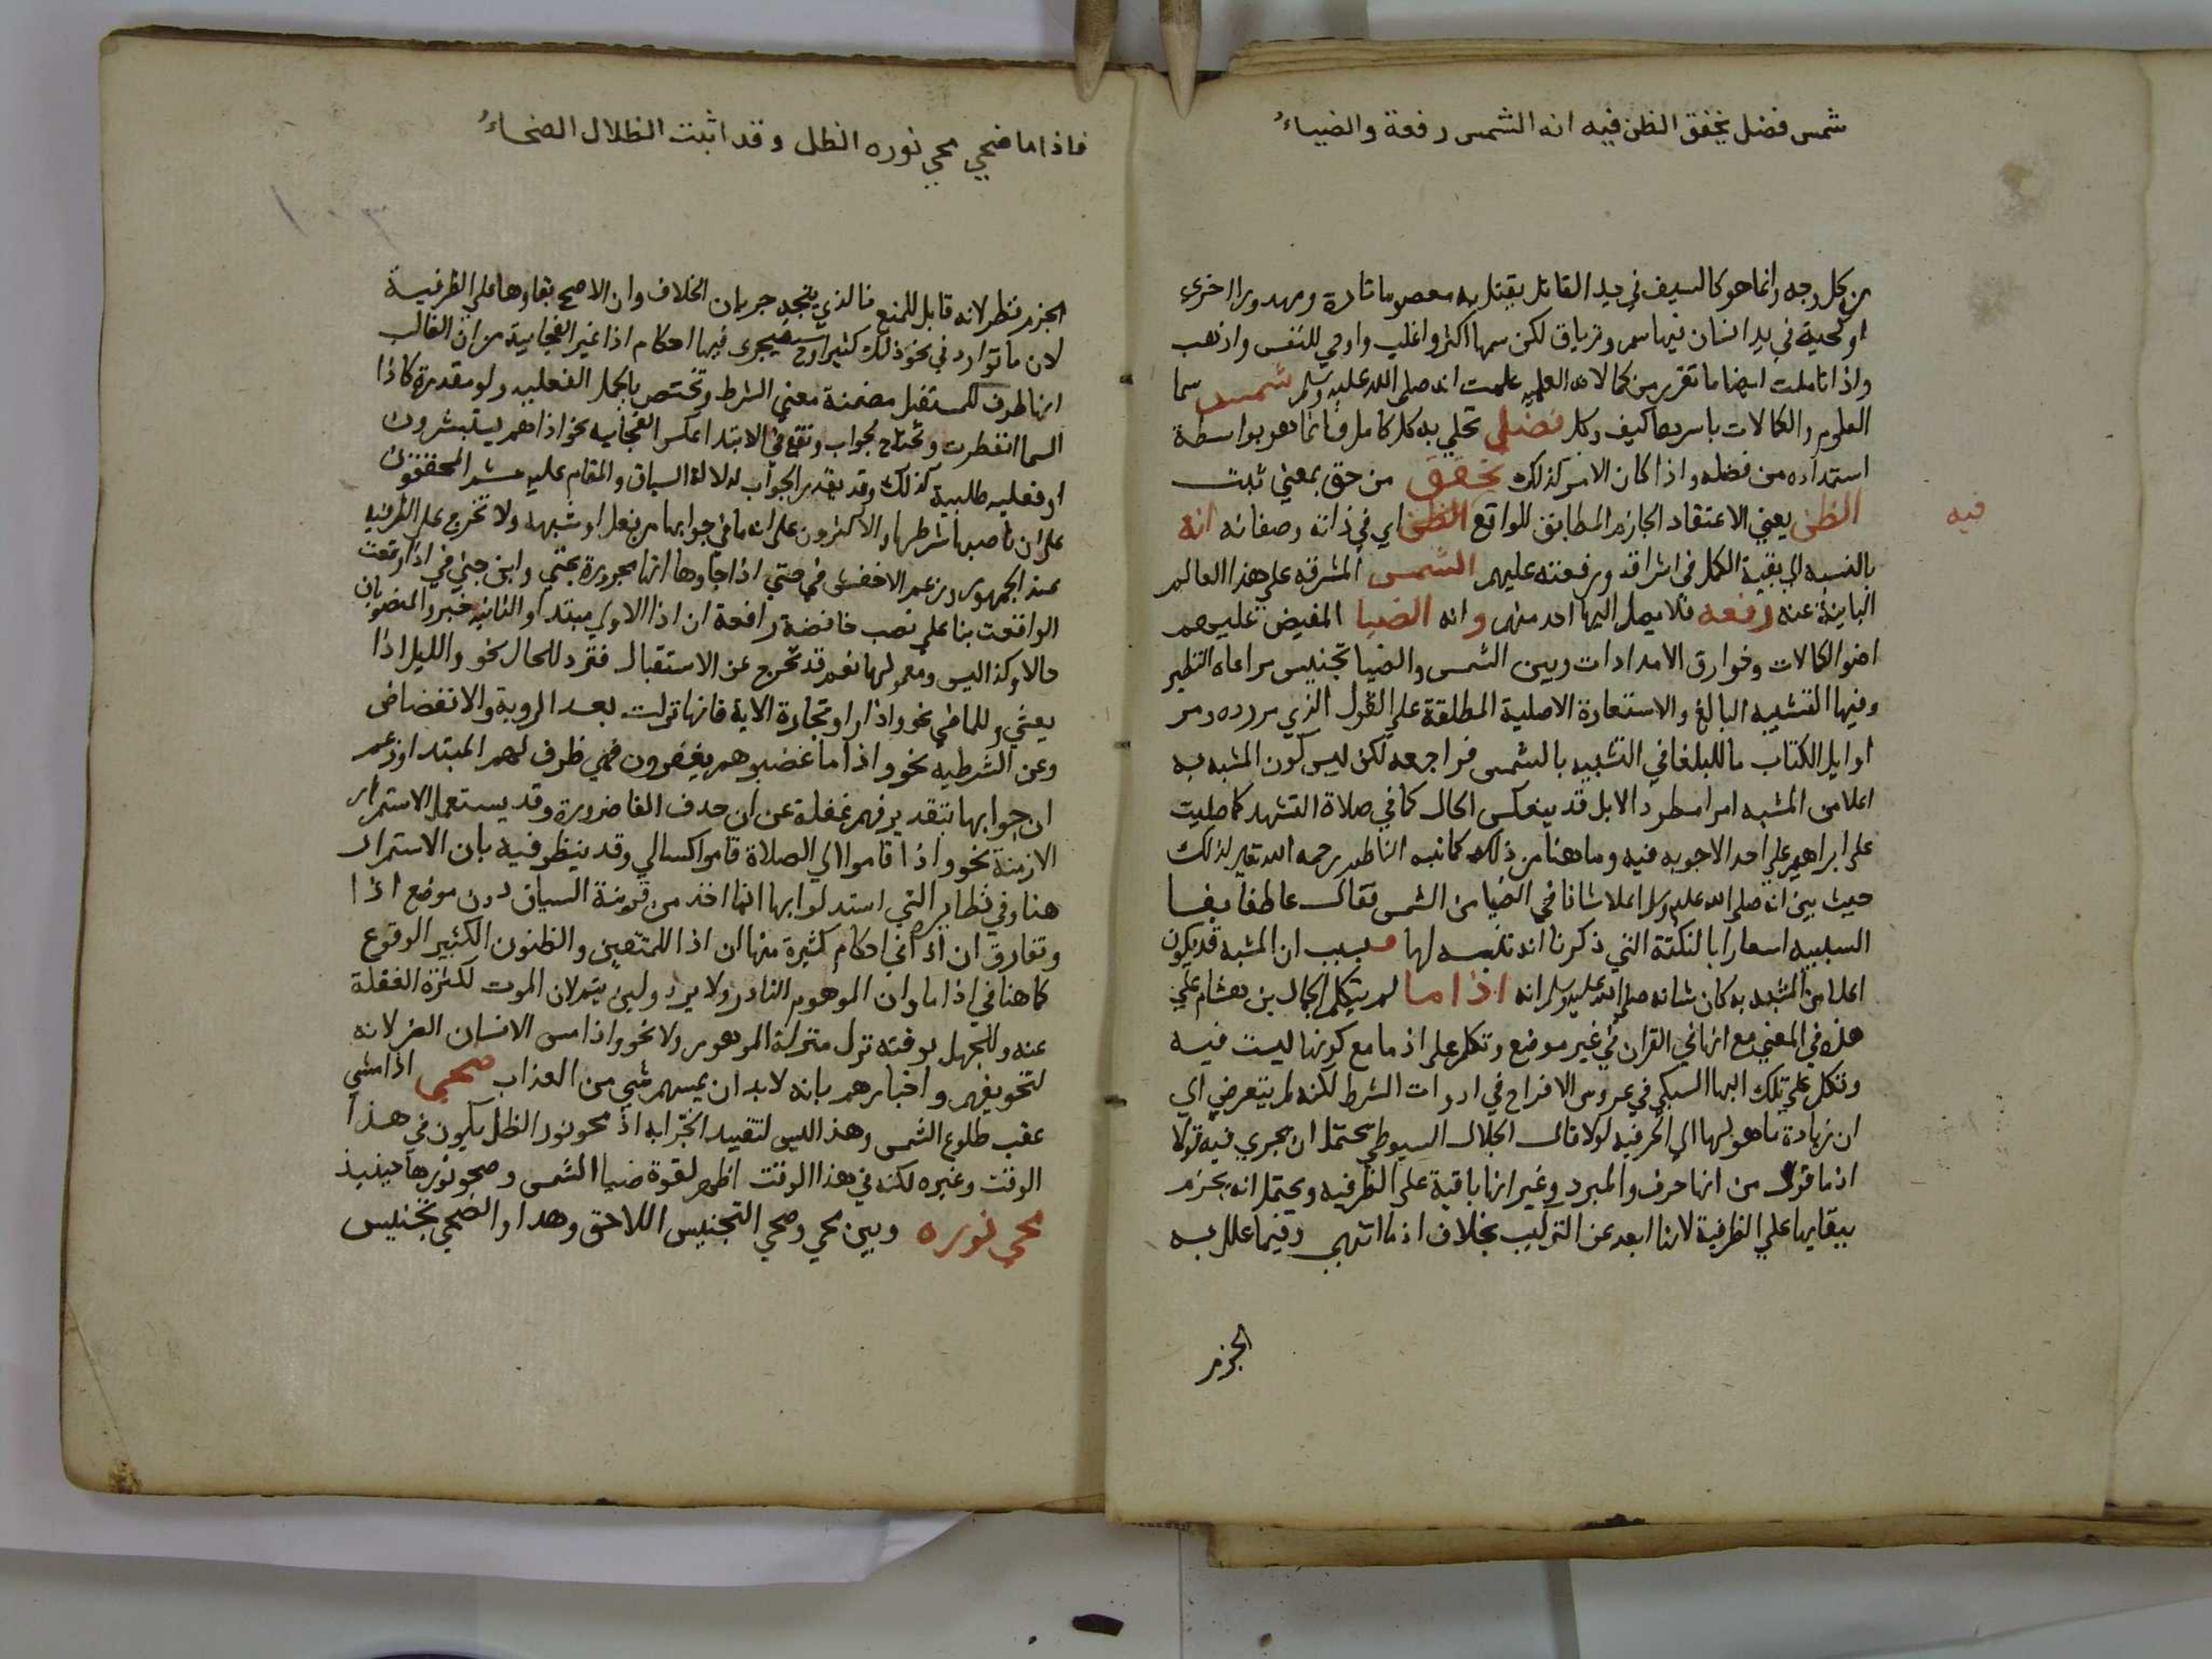 شمس فضل تحقق الظن فيه انه الشمس رفعة والضياءُ
من كل وجه وانما هو كالسيف في يد القاتل يقتل به معصوما تارة ومهدورا اخرى
او كحية في يد انسان فيها سم وترياق لكن سمها اكثر واغلب واوحي للنفس واذهب
واذا تاملت ايضا ما تقرر من كمالاته العليه علمت انه صلى الله عليه وسلم شمس سما
العلوم والكمالات باسرها كيف وكل فضل تحلي به كل كامل فانما هو بواسطة
استمداده من فضله واذا كان الامر كذلك تحقق من حق بمعني ثبت
الظن يعني الاعتقاد الجازم المطابق للواقع الظن اي في ذاته وصفاته انه
فيه
بالنسبه الي بقية الكمل في اشراقه ورفعته عليهم الشمس المشرقه علي هذا العالم
الباينة عنه رفعه فلا يصل اليها احد منهم وانه الضيا المفيض عليهم
اضوا الكمالات وخوارق الامدادات وبين الشمس والضيا تجنيس مراعاه النظير
وفيها التشبيه البالغ والاستعارة الاصلية المطلقة علي القول الذي مر رده ومر
اوايل الكتاب ما للبلغا في التشبيه بالشمس فراجعه لكن ليس كون المشبه به
اعلا من المشبه امرا مطردا لا بل قد ينعكس الحال كما في صلاة التشهد كما صليت
على ابراهيم علي احد الاجوبه فيه وما هنا من ذلك كما نبه الناظم رحمه الله تعالى لذلك
حيث بين انه صلى الله عليه وسلم اعلا شانا في الضيا من الشمس فقال عاطفا بفا
السببيه اسعارا بالنكتة التي ذكرنا انه تنبيه لها فبسبب ان المشبه قد يكون
اعلا من المشبه به كان شانه صلى الله عليه وسلم انه اذا ما لم يتكلم الجمال بن هشام علي
هذه في المغني مع انها في القران في غير موضع وتكلم على اذ ما مع كونها ليست فيه
وتكلم علي تلك البها السبكي في عروس الافراح في ادوات الشرط لكنه لم يتعرض اي
ان زيادة ما هو لها الي الحرفيه لولا قال الجلال السيوطي يحتمل ان يجري فيه قولا
اذ ما قول من انها حرف والمبرد وغير انها باقية علي الظرفيه ويحتمل انه يجزم
ببقايها علي الظرفية لانها ابعد عن التركيب بخلاف اذ ما انتهي وفيما علل به
الجزم
فاذا ما ضحي محي نوره الظل وقد اثبت الظلال الضحاءُ
الجزم نظر لانه قابل للمنع فالذي يتجه جريان الخلاف وان الاصح بقاوها علي الظرفية
لان ما توارد في نحو ذلك كثيرا وح سيجري فيها احكام اذا غير الفجاية من ان الغالب
انها ظرف للمستقبل مضمنة معني الشرط وتختص بالجمل الفعليه ولو مقدرة كاذا
السما انفطرت وتحتاج لجواب وتقع في الابتدا عكس الفجائيه نحو اذا هم يستبشرون
او فعليه طلبية كذلك وقد يقدر الجواب لدلالة السياق والمقام عليه ثم المحققون
على ان ناصبها شرطها والاكثرون على انه ما في جوابها من فعل او شبهه ولا تخرج على الظرفيه
عند الجمهور وزعم الاخفش في حتي اذا جاوها انها مجرورة بحتي وابن جني في اذا وقعت
الواقعت بنا على نصب خافضة رافعة ان اذا الاولي مبتدا والثانيه خبر والمنصوبان
حالا وكذا ليس ومعمولها نعم قد تخرج عن الاستقبال فترد للحال نحو والليل اذا
يغشي وللماضي نحو واذا راوا تجارة الاية فانها نزلت بعد الروية والانفضاض
وعن الشرطيه نحو واذا ما غضبوا هم يغفرون فهي ظرف لهم المبتدا وزعم
ان جوابها بتقدير فهم غفلة عن ان حذف الفا ضرورة وقد يستعمل الاستمرار
الازمنة نحو واذا قاموا الي الصلاة قاموا كسالي وقد ينظر فيه بان الاستمرار
هنا وفي نظايره التي استدلوا بها انما اخذ من قرينة السياق دون موضع اذا
وتفارق ان اذا في احكام كثيرة منها ان اذا للمتيقن والظنون الكثير الوقوع
كما هنا في اذا ما وان الموهوم النادر ولا يرد ولين متم لان الموت لكثرة الغفلة
عنه وللجهل بوقته نزل منزلة الموهوم ولا نحو واذا مس الانسان الضر لانه
لتخويفهم واخبارهم بانه لابد ان يمسهم شي من العذاب ضحى اذا مشي
عقب طلوع الشمس وهذا ليس لتقييد الخبر به اذ محو نور الظل يكون في هذا
الوقت وغيره لكنه في هذا الوقت اظهر لقوة ضيا الشمس وصحو نورها حينيذ
محي نوره وبين محي وضحي التجنيس اللاحق وهدا والضحي تجنيس